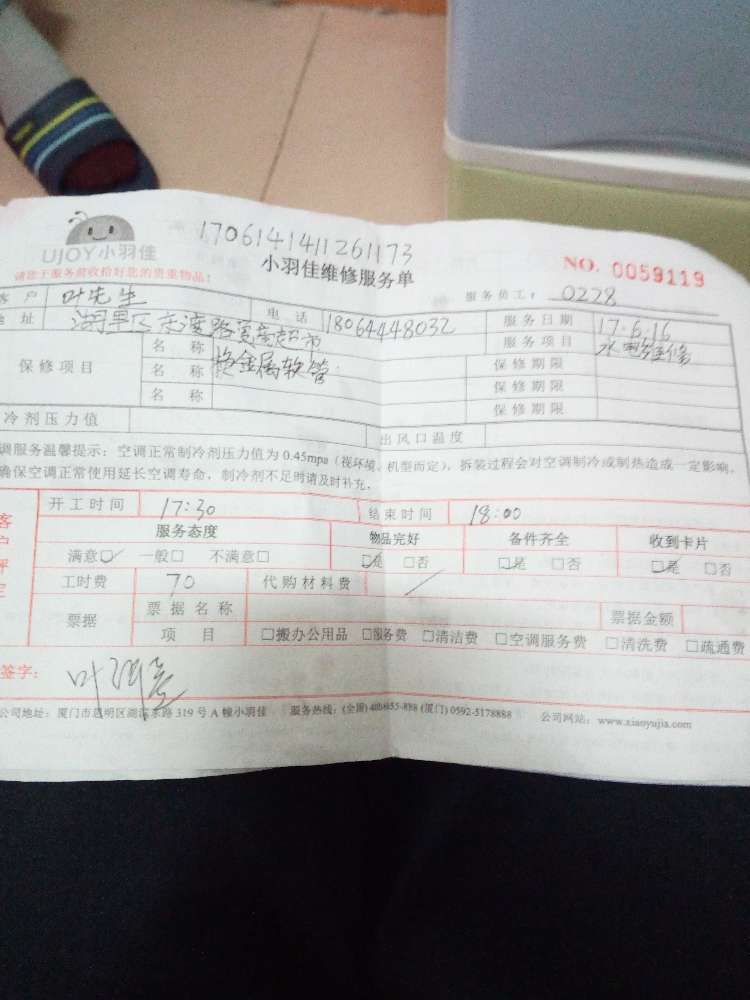 1706141411261173
UJOY小羽佳
小羽佳维修服务单
NO. 0059119
请您于服务前收拾好您的贵重物品！
服务员工： 0228
客 户 叶先生 电 话 18064448032 服务日期 17.6.16
地 址 湖里区 路 超市 服务项目 水电维修
保修项目 名 称 换金属软管 保修期限
名 称 保修期限
名 称 保修期限
冷剂压力值 出风口温度
调服务温馨提示：空调正常制冷剂压力值为 0.45mpa（视环境、机型而定），拆装过程会对空调制冷或制热造成一定影响，
确保空调正常使用延长空调寿命，制冷剂不足时请及时补充。
开工时间 17:30 结束时间 18:00
客户评定
服务态度 物品完好 备件齐全 收到卡片
满意☑ 一般□ 不满意□ ☑是 □否 ☑是 □否 ☑是 □否
工时费 70 代购材料费 /
票据 票据名称 票据金额
项 目 □搬办公用品 □服务费 □清洁费 □空调服务费 □清洗费 □疏通费
签字： 叶
公司地址：厦门市思明区湖滨东路 319 号 A 幢小羽佳 服务热线：(全国) 400-855-888 (厦门) 0592-5178888 公司网站：www.xiaoyujia.com